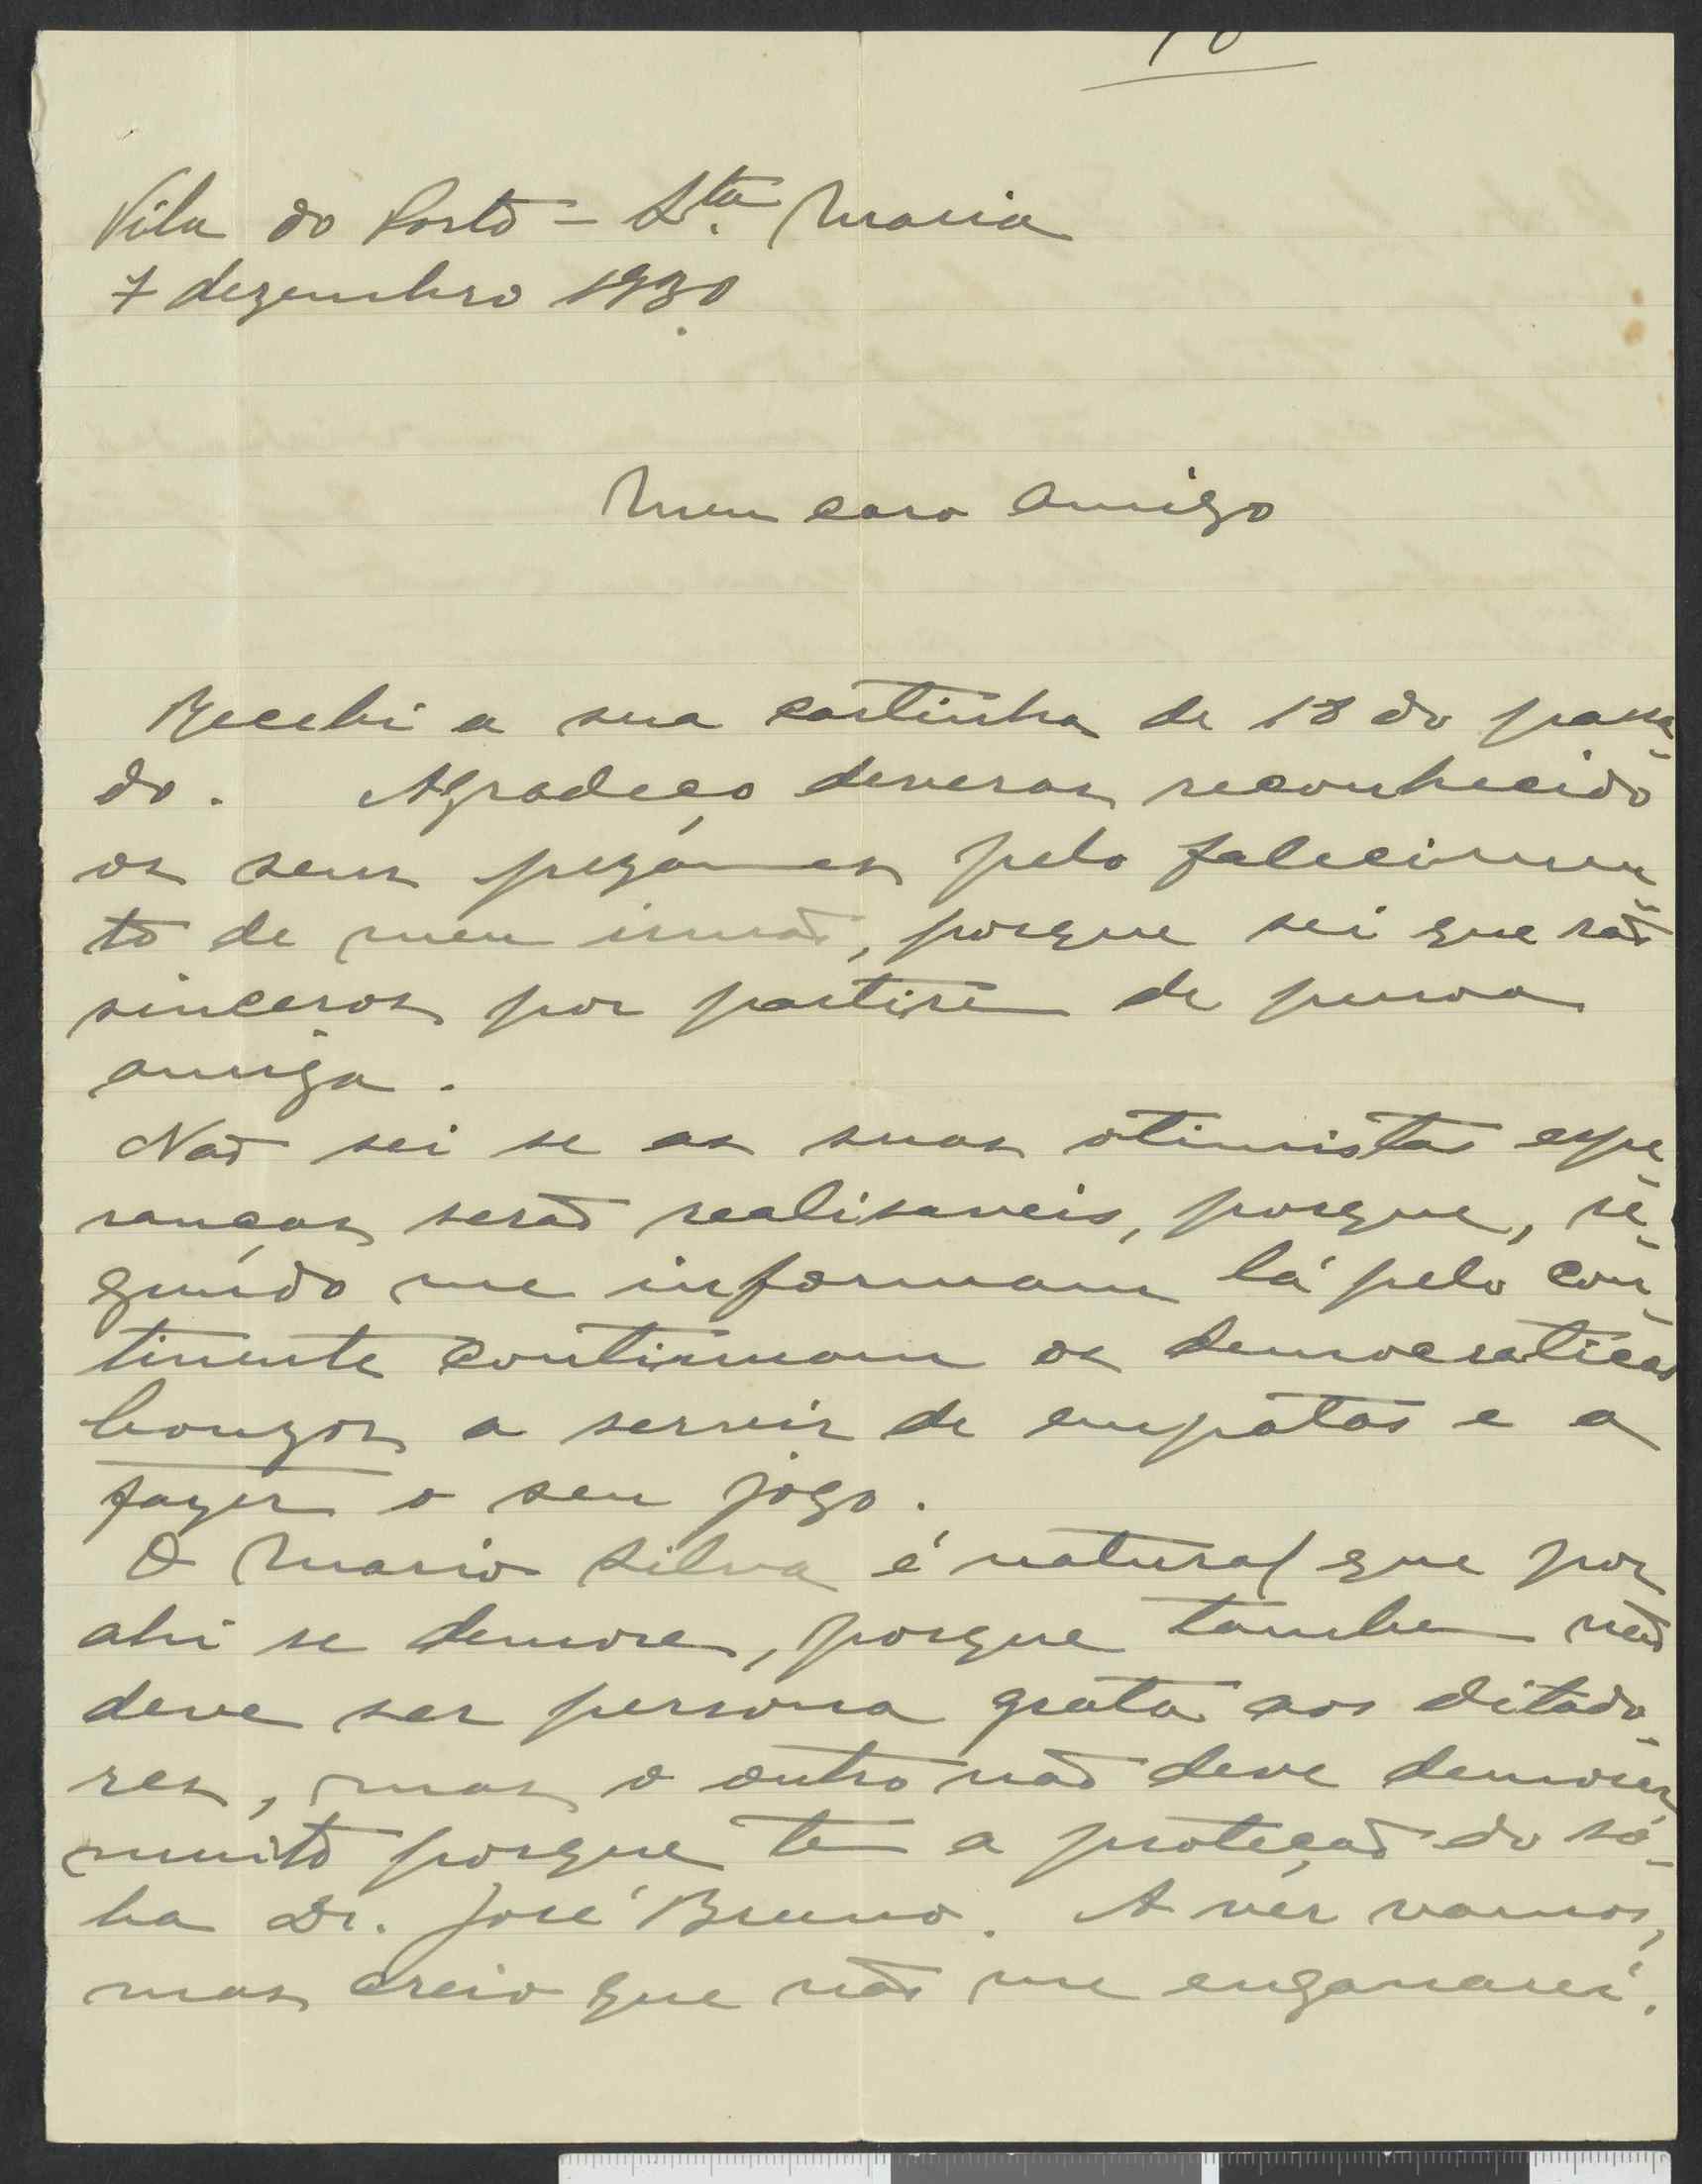 Vila do Porto = Sta. Maria
7 dezembro 1930
Meu caro amigo
Recebi a sua cartinha de 18 do passa-
do. Agradeço deveras reconhecido
os seus pezámes pelo falecimen-
to de meu irmão, porque sei que são
sinceros por partirem de pessoa
amiga.
Não sei se as suas otimistas espe-
ranças serão realisaveis, porque, se-
gundo me informam lá pelo con-
tinente continuam os democraticos
bonzos a servir de empatas e a
fazer o seu jogo.
O Mario Silva é natural que por
ahi se demore, porque tambem não
deve ser persona grata aos ditado-
res, mas o outro não deve demorar
muito porque tem a proteção do só-
ba Dr. José Bruno. A vêr vamos,
mas creio que não me enganarei.